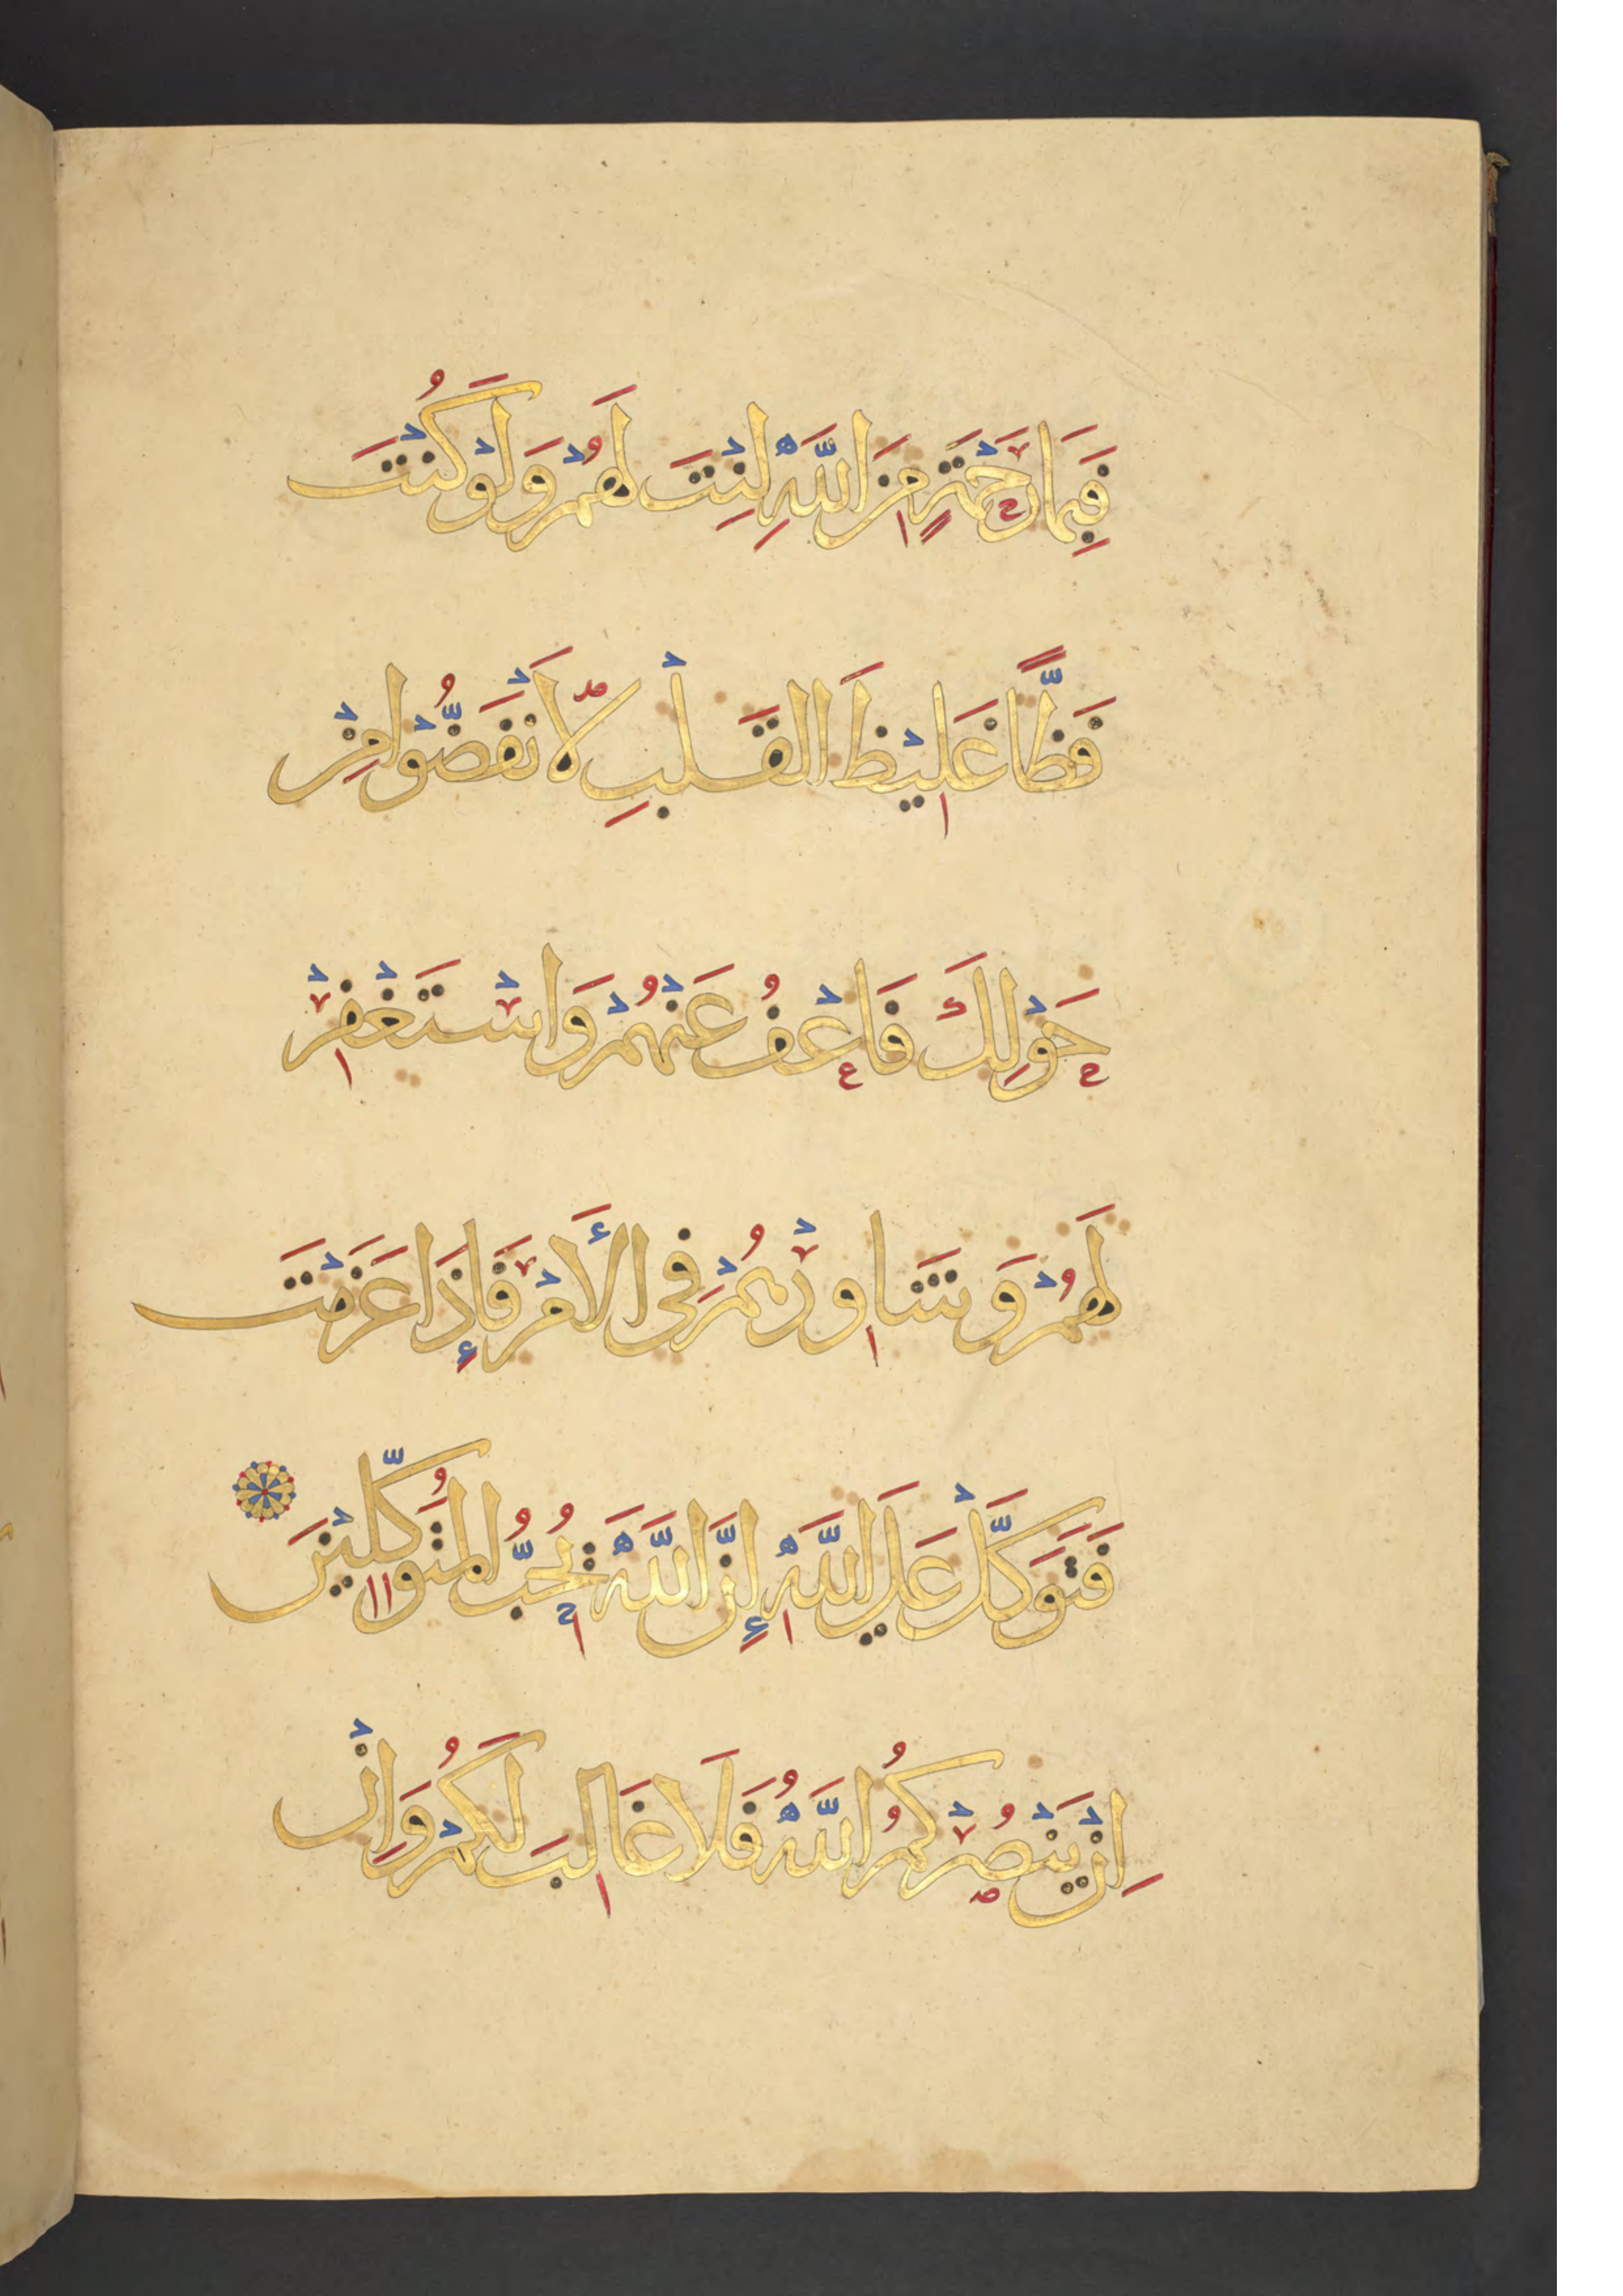 فَبِمَا رَحْمَةٍ مِنَ اللَّهِ لِنْتَ لَهُمْ وَلَوْ كُنْتَ
فَظًّا غَلِيْظَ الْقَلْبِ لَا نْفَضُّوْا مِنْ
حَوْلِكَ فَاعْفُ عَنْهُمْ وَاسْتَغْفِرْ
لَهُمْ وَشَاوِرْهُمْ فِى الْأَمْرِ فَإِذَا عَزَمْتَ
فَتَوَكَّلْ عَلَى اللَّهِ إِنَّ اللَّهَ يُحِبُّ الْمُتَوَكِّلِيْنَ
اِنْ يَنْصُرْكُمُ اللَّهُ فَلَا غَالِبَ لَكُمْ وَاِنْ